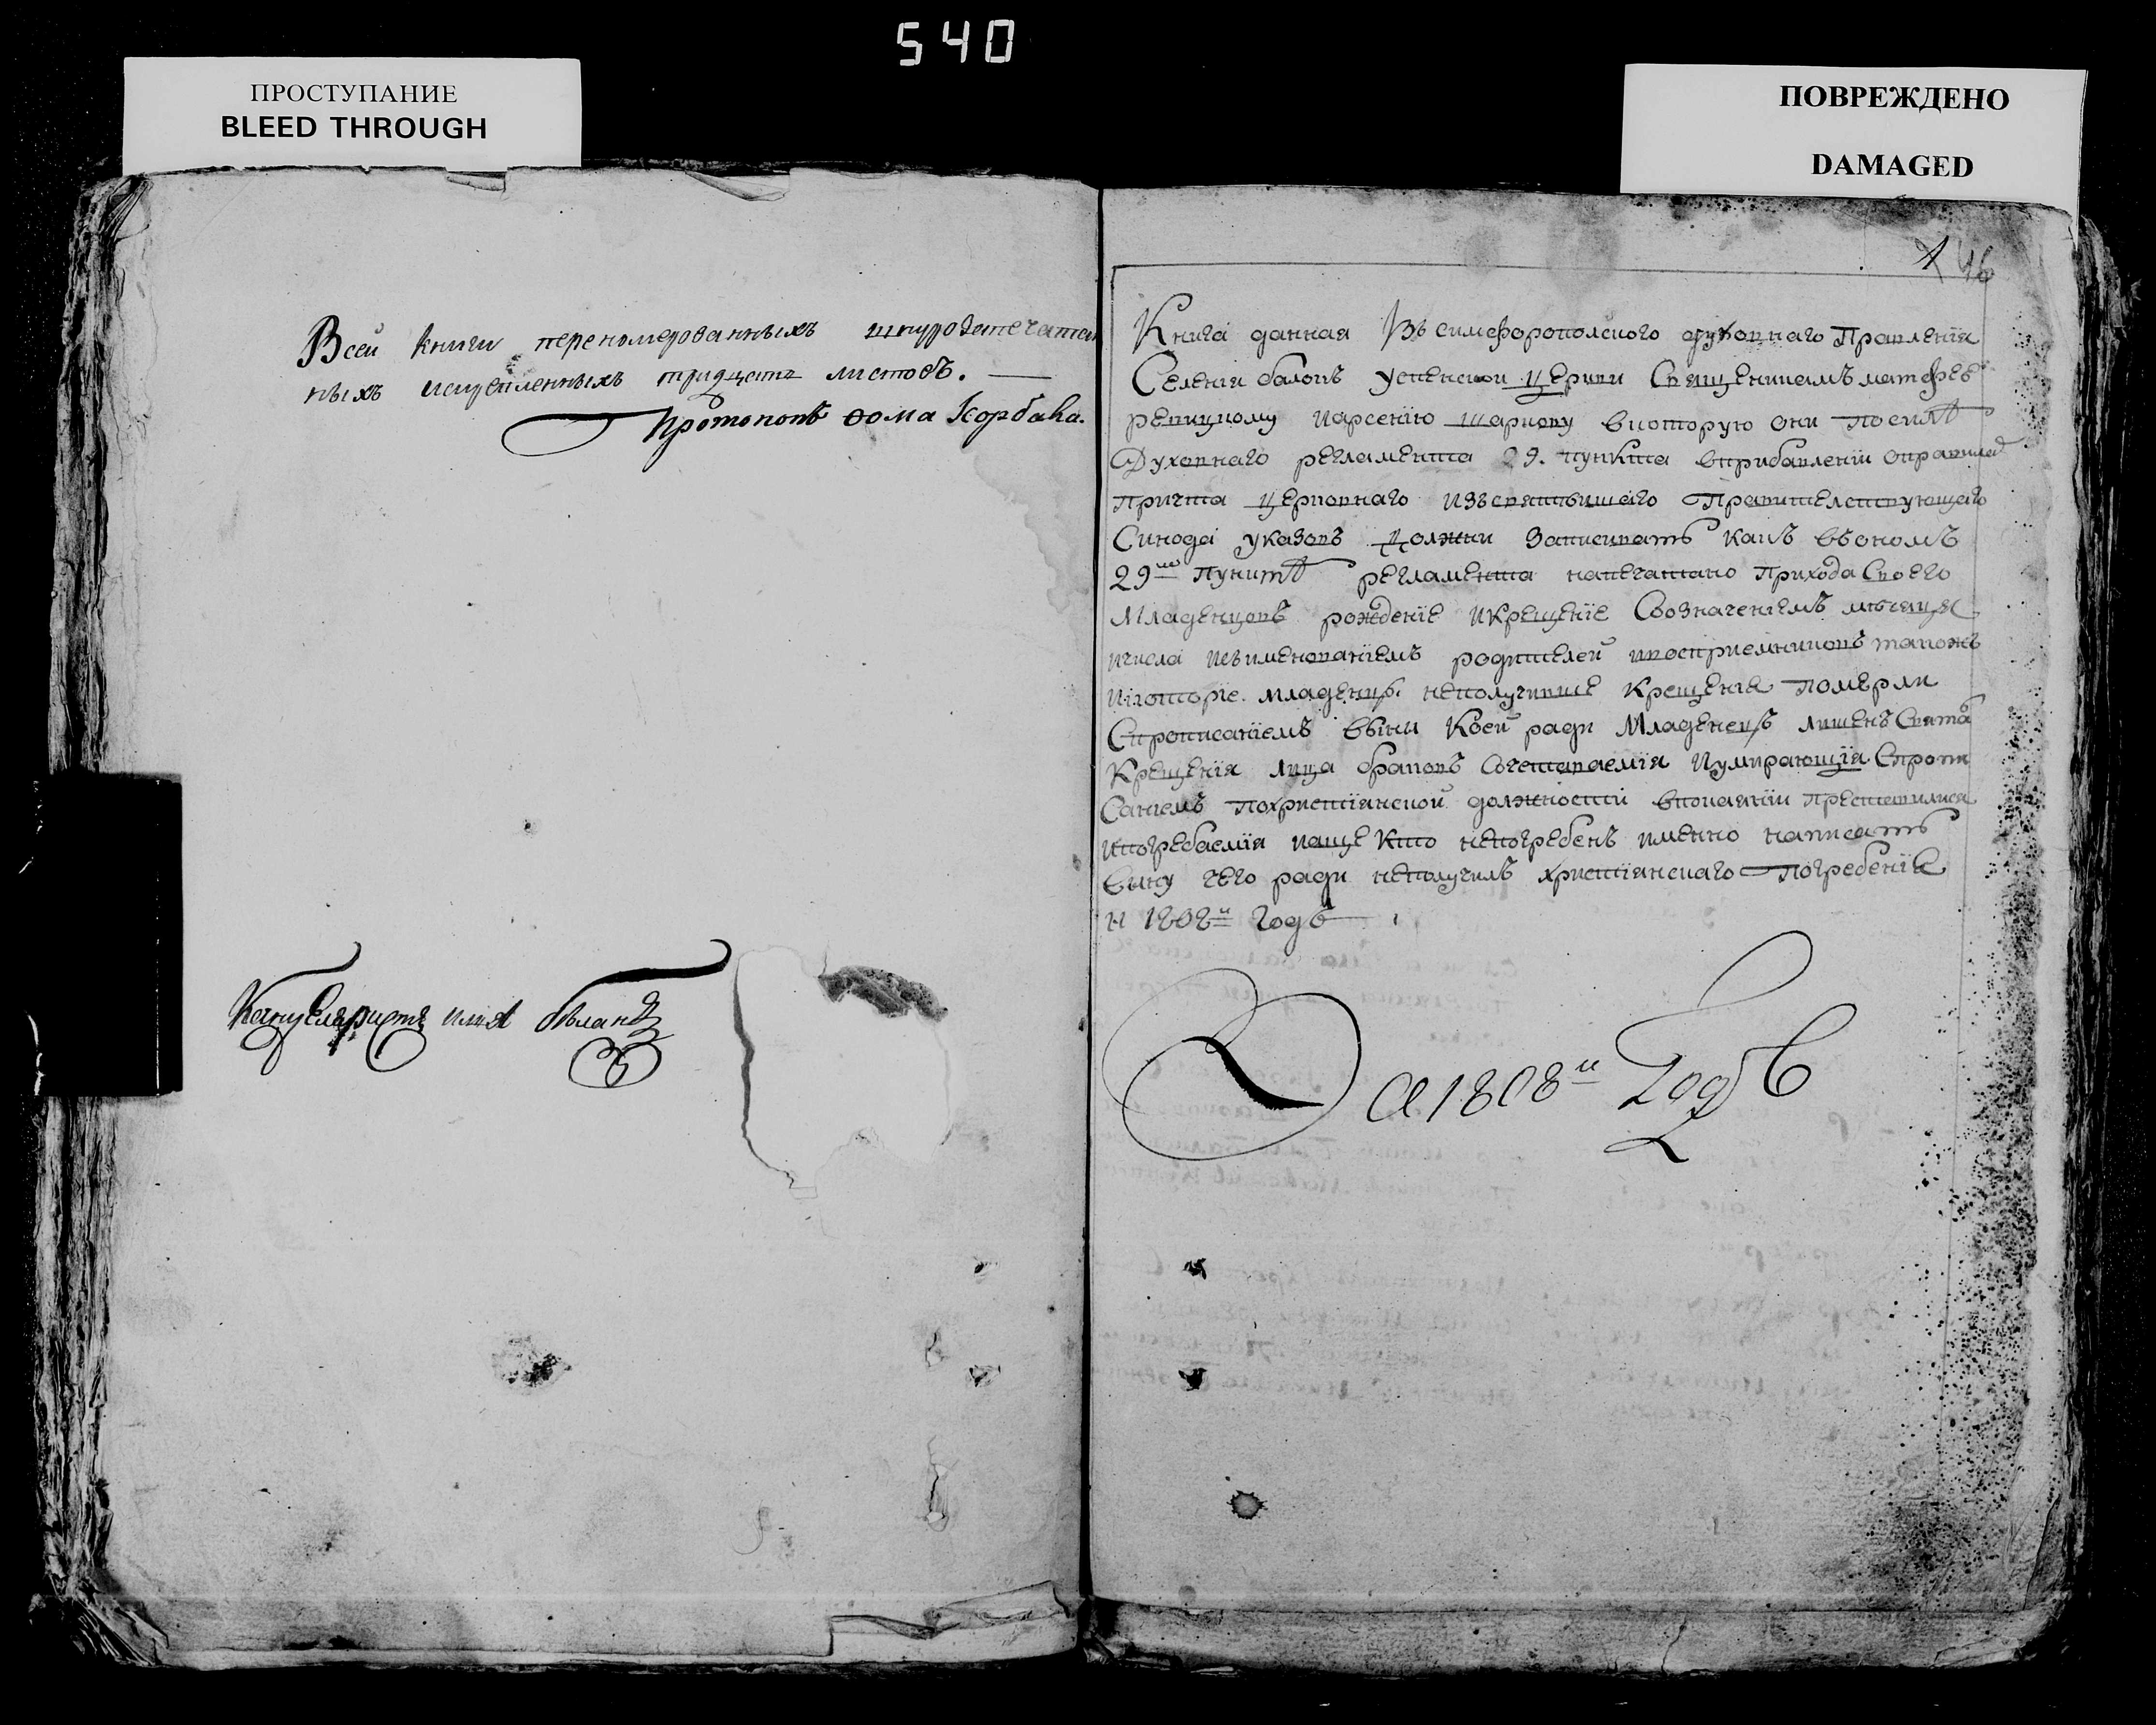 540
ПРОСТУПАНИЕ
BLEED THROUGH
ПОВРЕЖДЕНО
DAMAGED
Всей книги переномерованныхъ шнурозапечатан
ныхъ искрепленныхъ тридцеть листовъ. —
Протопопъ Ѳома Корбака.
Канцеляристъ илья
46
Книга данная Изъ симеферополского духовнаго Правленія
Селенія балокъ успенской церкви Священникамъ матфею
и арсенію вкоторую они посилѣ
Духовнаго регламента 29. пункта вприбавленіи оправилах
причта церковнаго изъсвятѣйшаго Правителствующаго
Синода указовъ должни Записивать какъ въономъ
29мъ пунктѣ регламента напечатано прихода Своего
Младенцовъ рожденіе икрещеніе Созначеніемъ мѣсяца
ичисла исъименованіемъ родителей ивосприемниковъ такожъ
икоторіе младенцы неполучивше крещенія померли
Спрописаніемъ вѣны Коей ради Младенецъ лишенъ Свята
Крещенія лица браковъ Сочетаваемія Иумирающія Спропи
Саніемъ похристіянской должности впокаяніи преставилися
ипогребаемія иаще кто непогребенъ именно написать
вѣну чего ради неполучилъ христіянскаго погребенія
н 1808й годъ
На 1808й Годъ